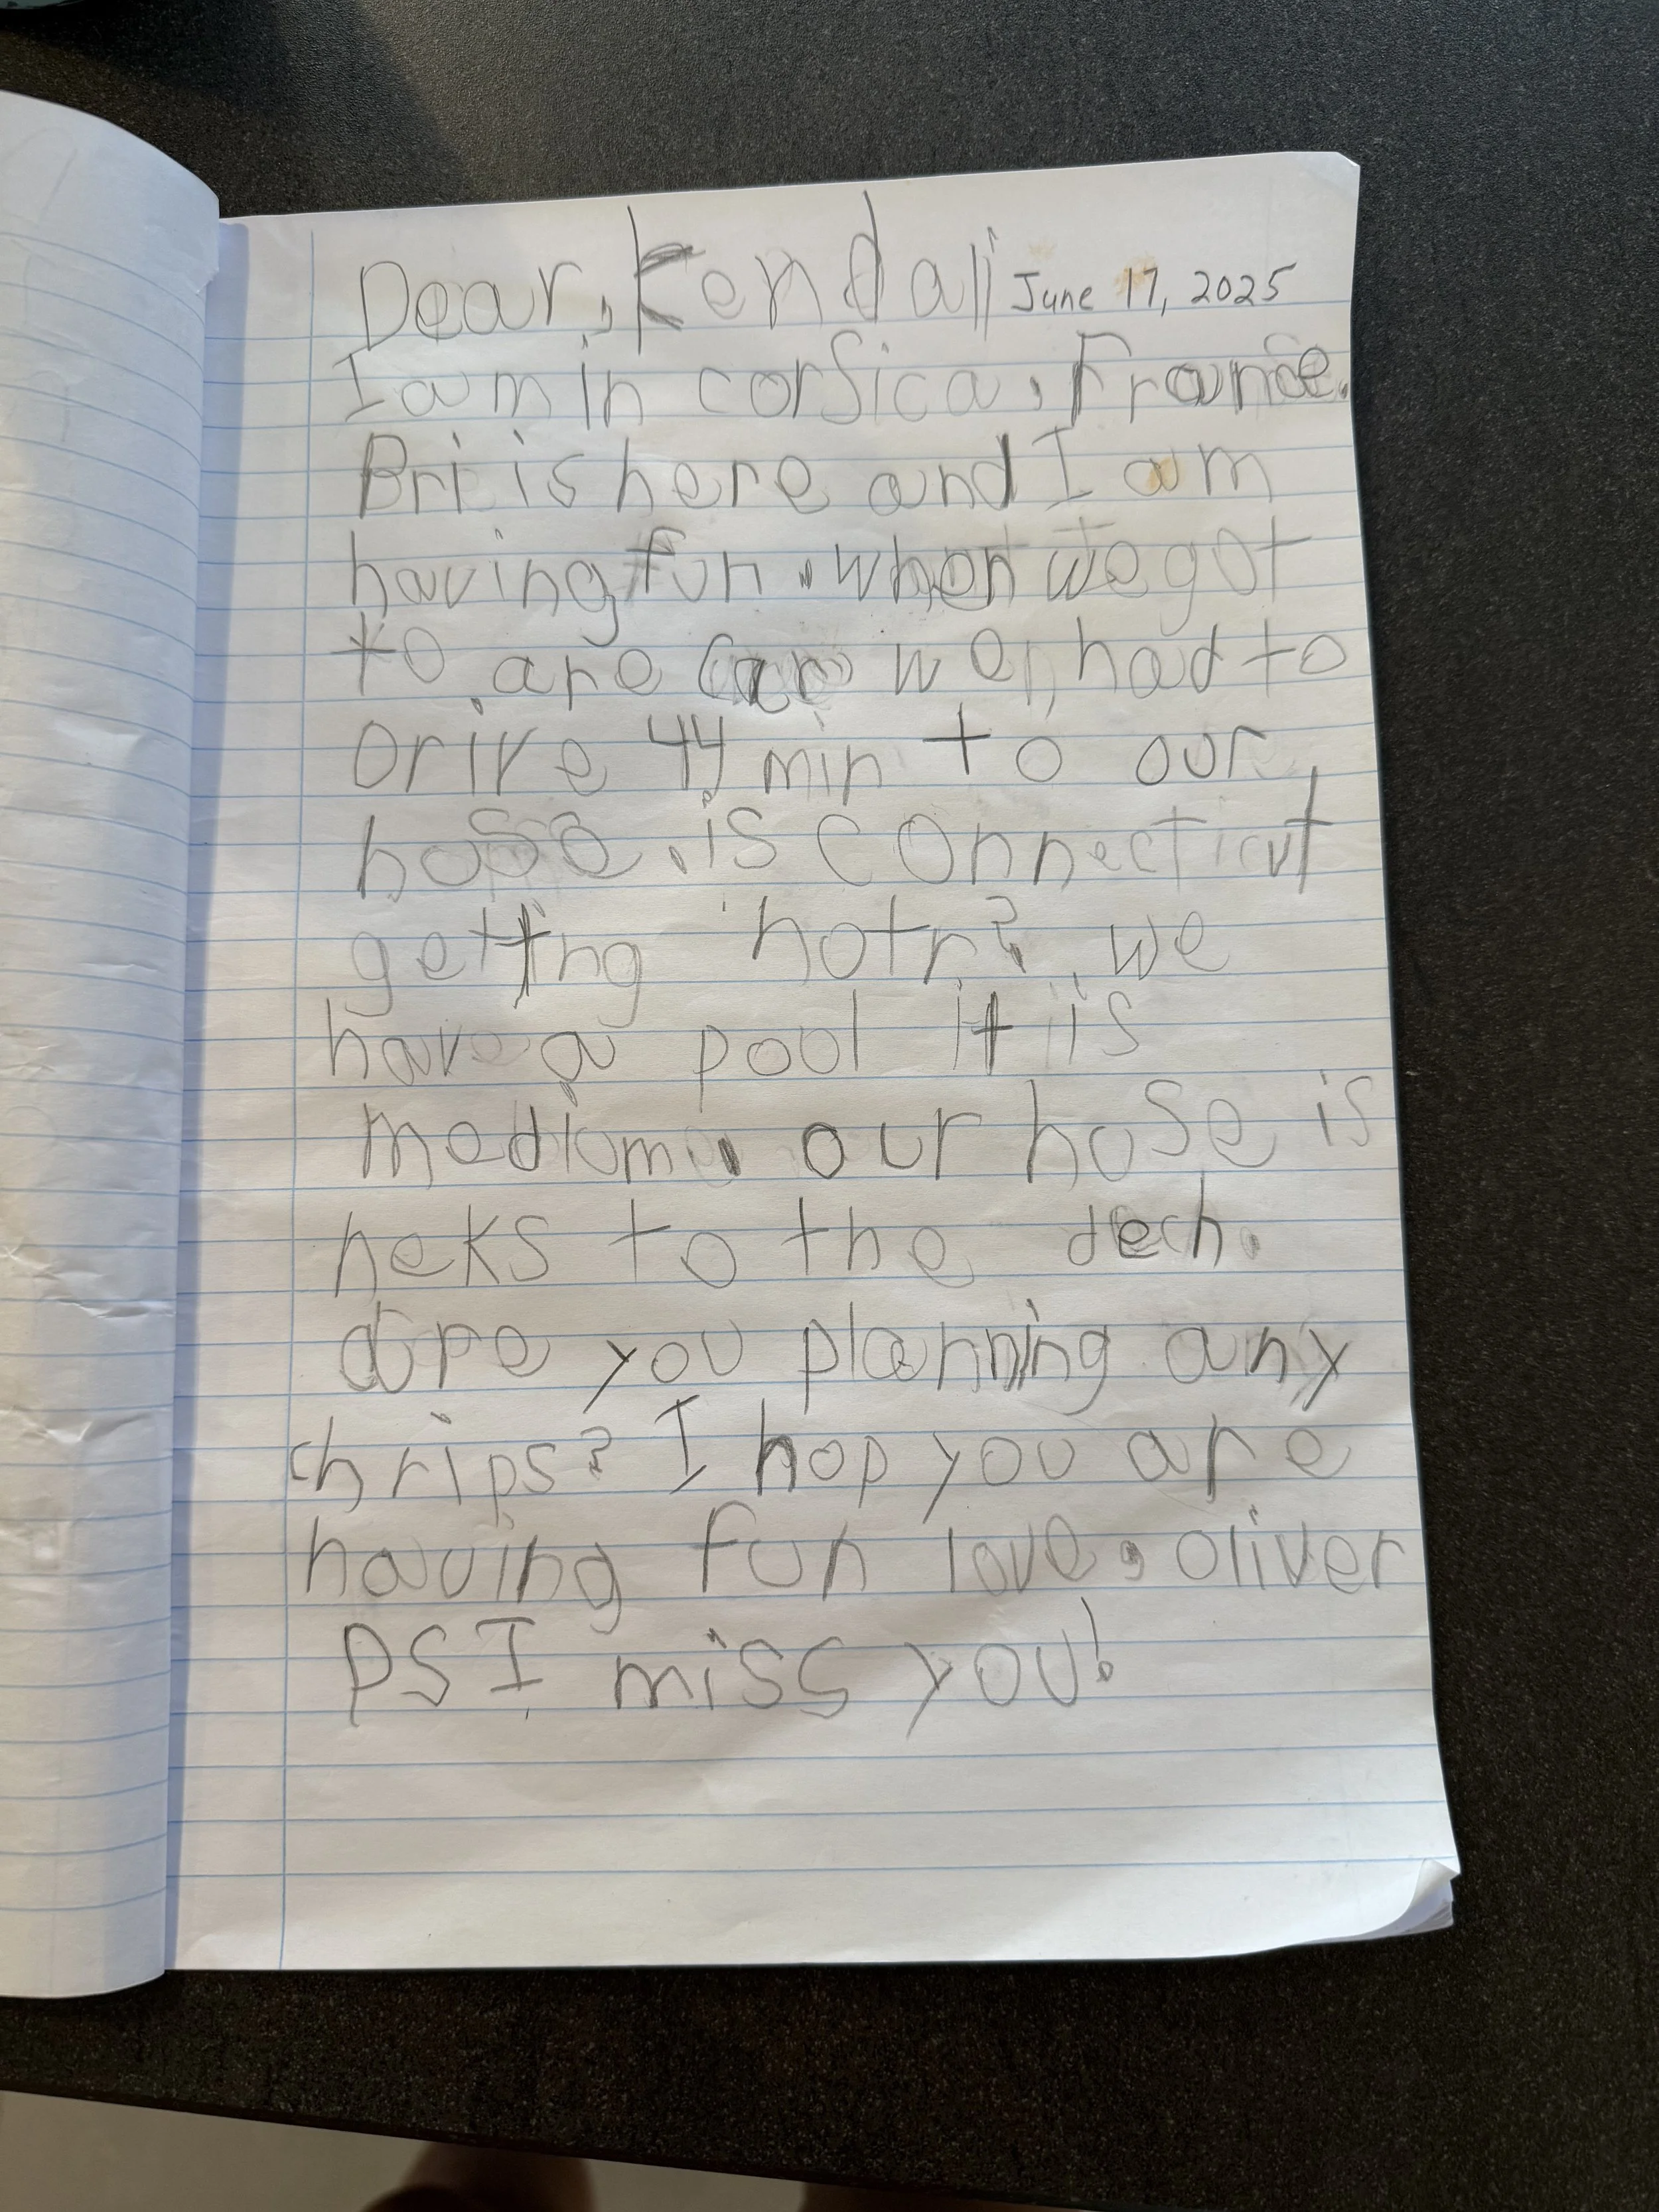 Dear, Kendall June 17, 2025
I am in corsica, France.
Bri is here and I am
having fun. when we got
to are car we had to
Drive 44 min to our
hose. is connecticut
getting hotr? we
have a pool it is
mediom. our hose is
neks to the dech.
are you planning any
chrips? I hop you are
having fun love, oliver
PS I miss you!